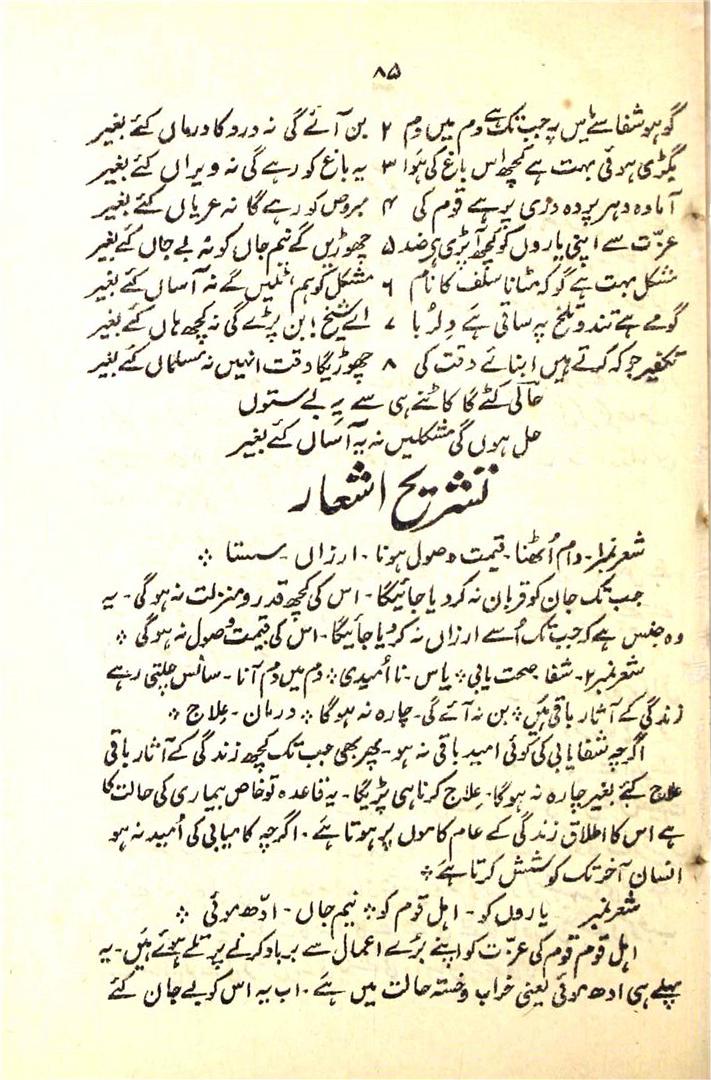 ۸۵
گو ہو شفا سے یاس پہ جب تک ہے دم میں دم ۲ بن آئے گی نہ درد کا درماں کئے بغیر
بگڑی ہوئی بہت ہے کچھ اس باغ کی ہوا ۳ یہ باغ کو رہے گی نہ ویراں کئے بغیر
آمادہ دہر پردہ دری پر ہے قوم کی ۴ مبروص کو رہے گا نہ عریاں کئے بغیر
عزت سے اپنی یاروں کو کچھ آپڑی ہے ضد ۵ چھوڑیں گے نیم جاں کو نہ بے جاں کئے بغیر
مشکل بہت ہے گو کہ مٹانا سلف کا نام ۶ مشکل کو ہم ٹلیں گے نہ آساں کئے بغیر
گو مے ہے تند و تلخ پہ ساقی ہے دلربا ۷ اے شیخ! بن پڑے گی نہ کچھ ہاں کئے بغیر
تکفیر جو کہ کرتے ہیں ابنائے وقت کی ۸ چھوڑیگا وقت انہیں نہ مسلماں کئے بغیر
حالی کٹے گا کاٹنے ہی سے یہ بے ستوں
حل ہوں گی مشکلیں نہ یہ آساں کئے بغیر
تشریح اشعار
شعر نمبر۱۔ دام اُٹھنا۔ قیمت وصول ہونا۔ ارزاں۔ سستا ⁘
جب تک جان کو قربان نہ کر دیا جائیگا۔ اس کی کچھ قدر و منزلت نہ ہوگی۔ یہ
وہ جنس ہے کہ جب تک اُسے ارزاں نہ کر دیا جائیگا۔ اس کی قیمت وصول نہ ہوگی ⁘
شعر نمبر۲۔ شفا۔ صحت یابی ⁘ یاس۔ نا اُمیدی ⁘ دم میں دم آنا۔ سانس چلتی رہے
زندگی کے آثار باقی ہیں ⁘ بن نہ آئے گی۔ چارہ نہ ہوگا ⁘ درمان۔ علاج ⁘
اگرچہ شفایابی کی کوئی امید باقی نہ ہو۔ پھر بھی جب تک کچھ زندگی کے آثار باقی
علاج کئے بغیر چارہ نہ ہوگا۔ علاج کرنا ہی پڑیگا۔ یہ قاعدہ تو خاص بیماری کی حالت کا
ہے اس کا اطلاق زندگی کے عام کاموں پر ہوتا ہے۔ اگرچہ کامیابی کی اُمید نہ ہو
انسان آخر تک کوشش کرتا ہے ⁘
شعر نمبر یاروں کو۔ اہل قوم کو ⁘ نیم جاں۔ ادھ موئی ⁘
اہل قوم قوم کی عزت کو اپنے بڑے اعمال سے برباد کرنے پر تلے ہوئے ہیں۔ یہ
پہلے ہی ادھ موئی یعنی خراب و خستہ حالت میں ہے۔ اب یہ اس کو بے جان کئے